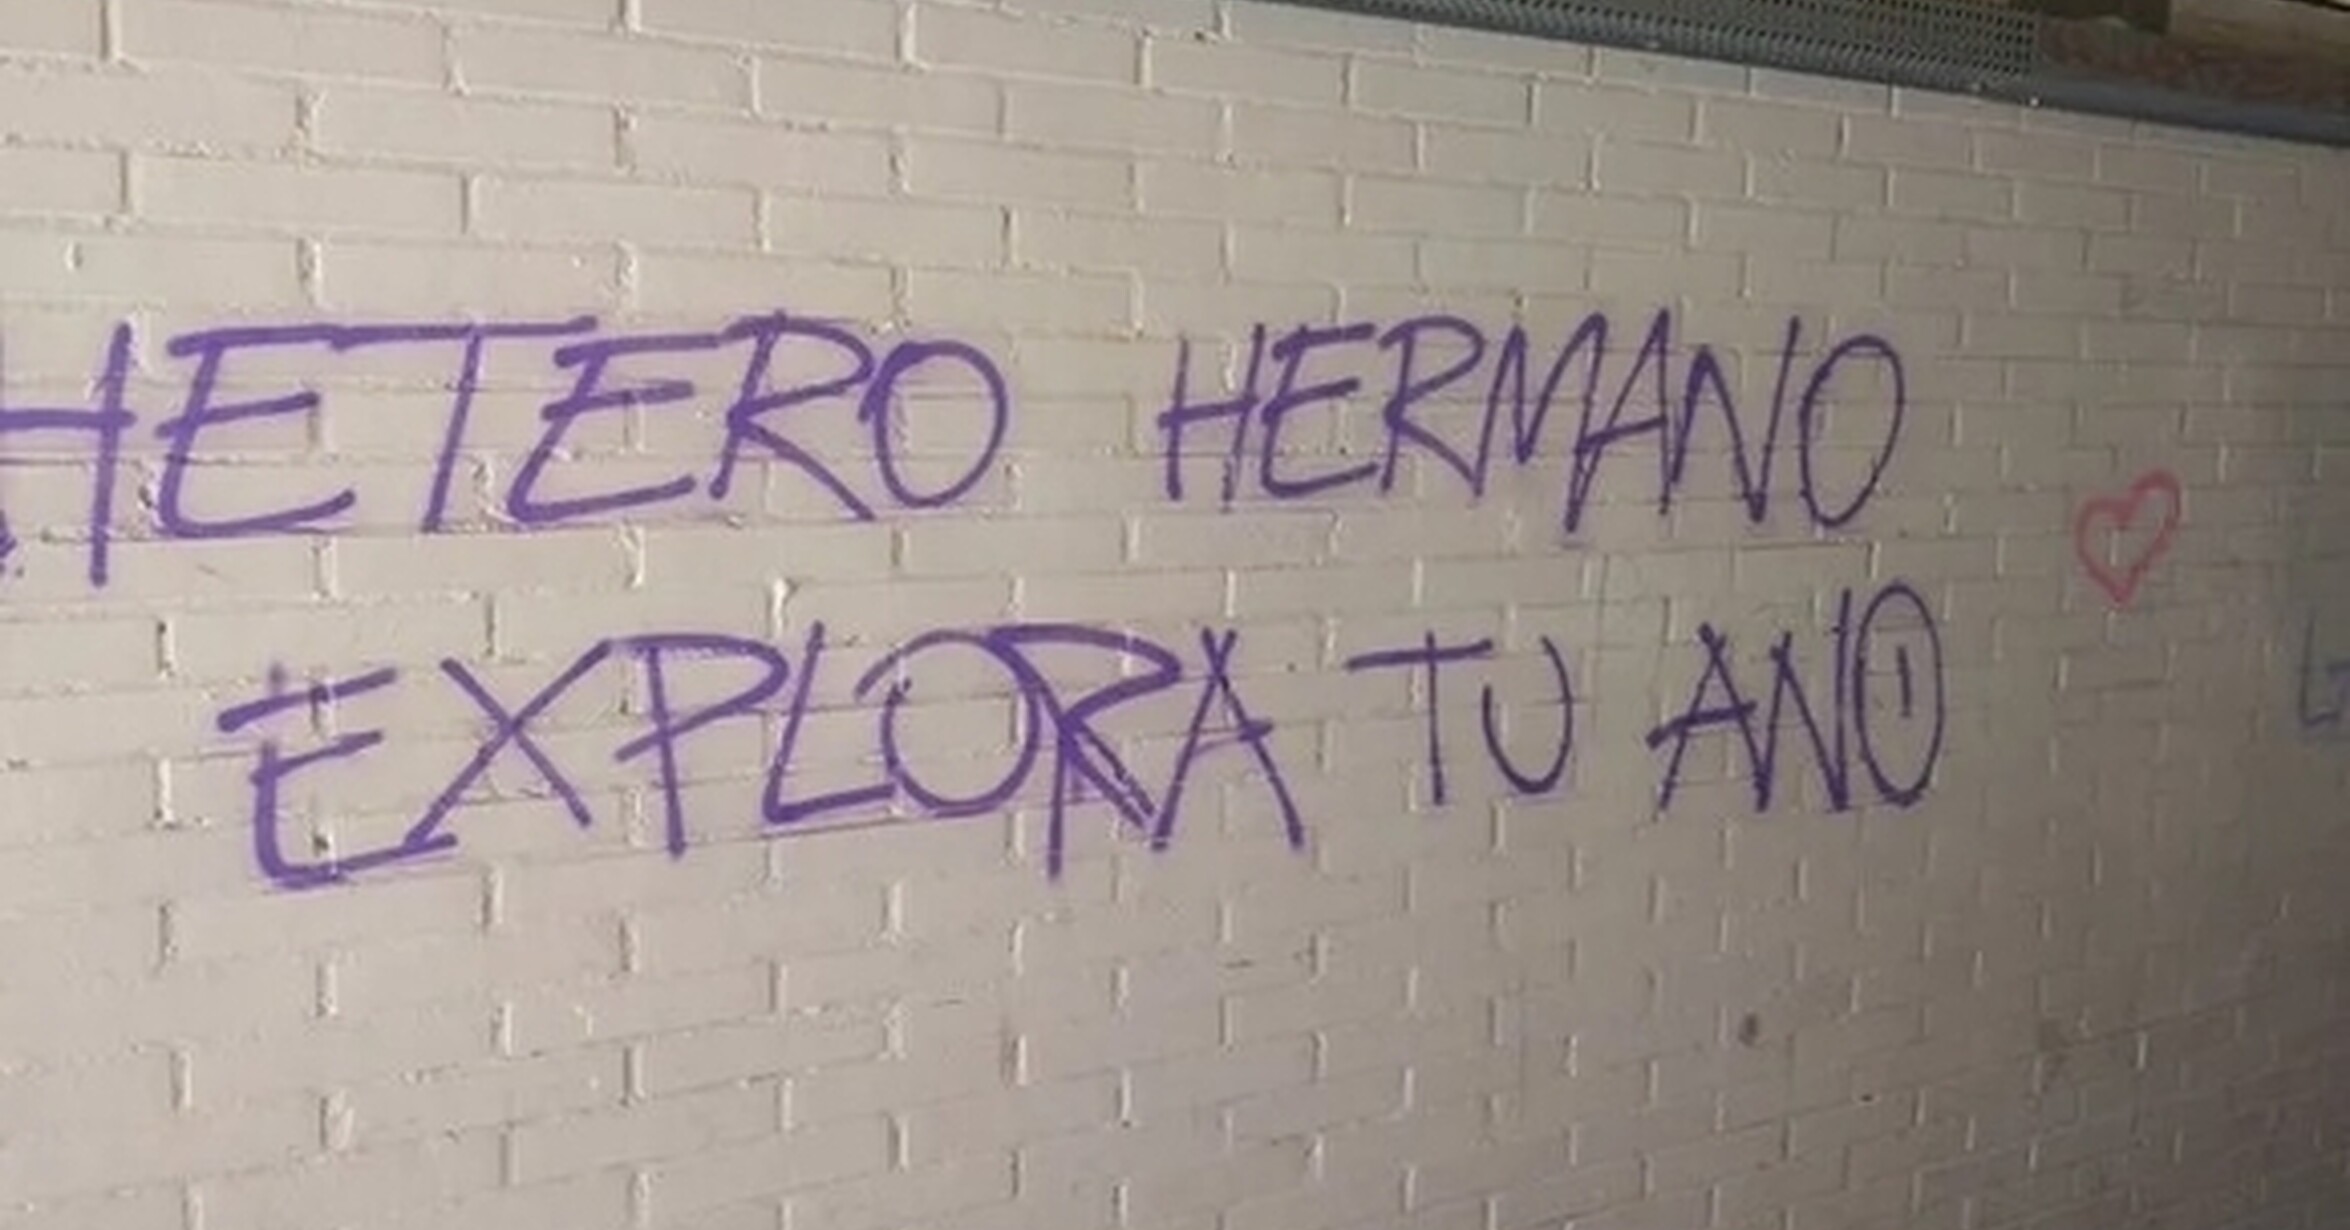 HETERO HERMANO
EXPLORA TU ANO